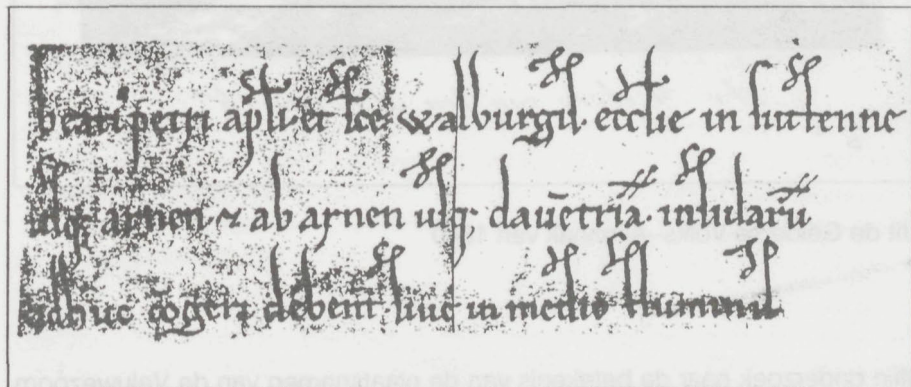 beati petri apl̄i · et sc̄e walburgis · eccl̄ie in sutfenne
usq; arnen · ⁊ ab arnen usq; dauētria · insularū
adhuc cōgeri debent · siue in medio fluminis